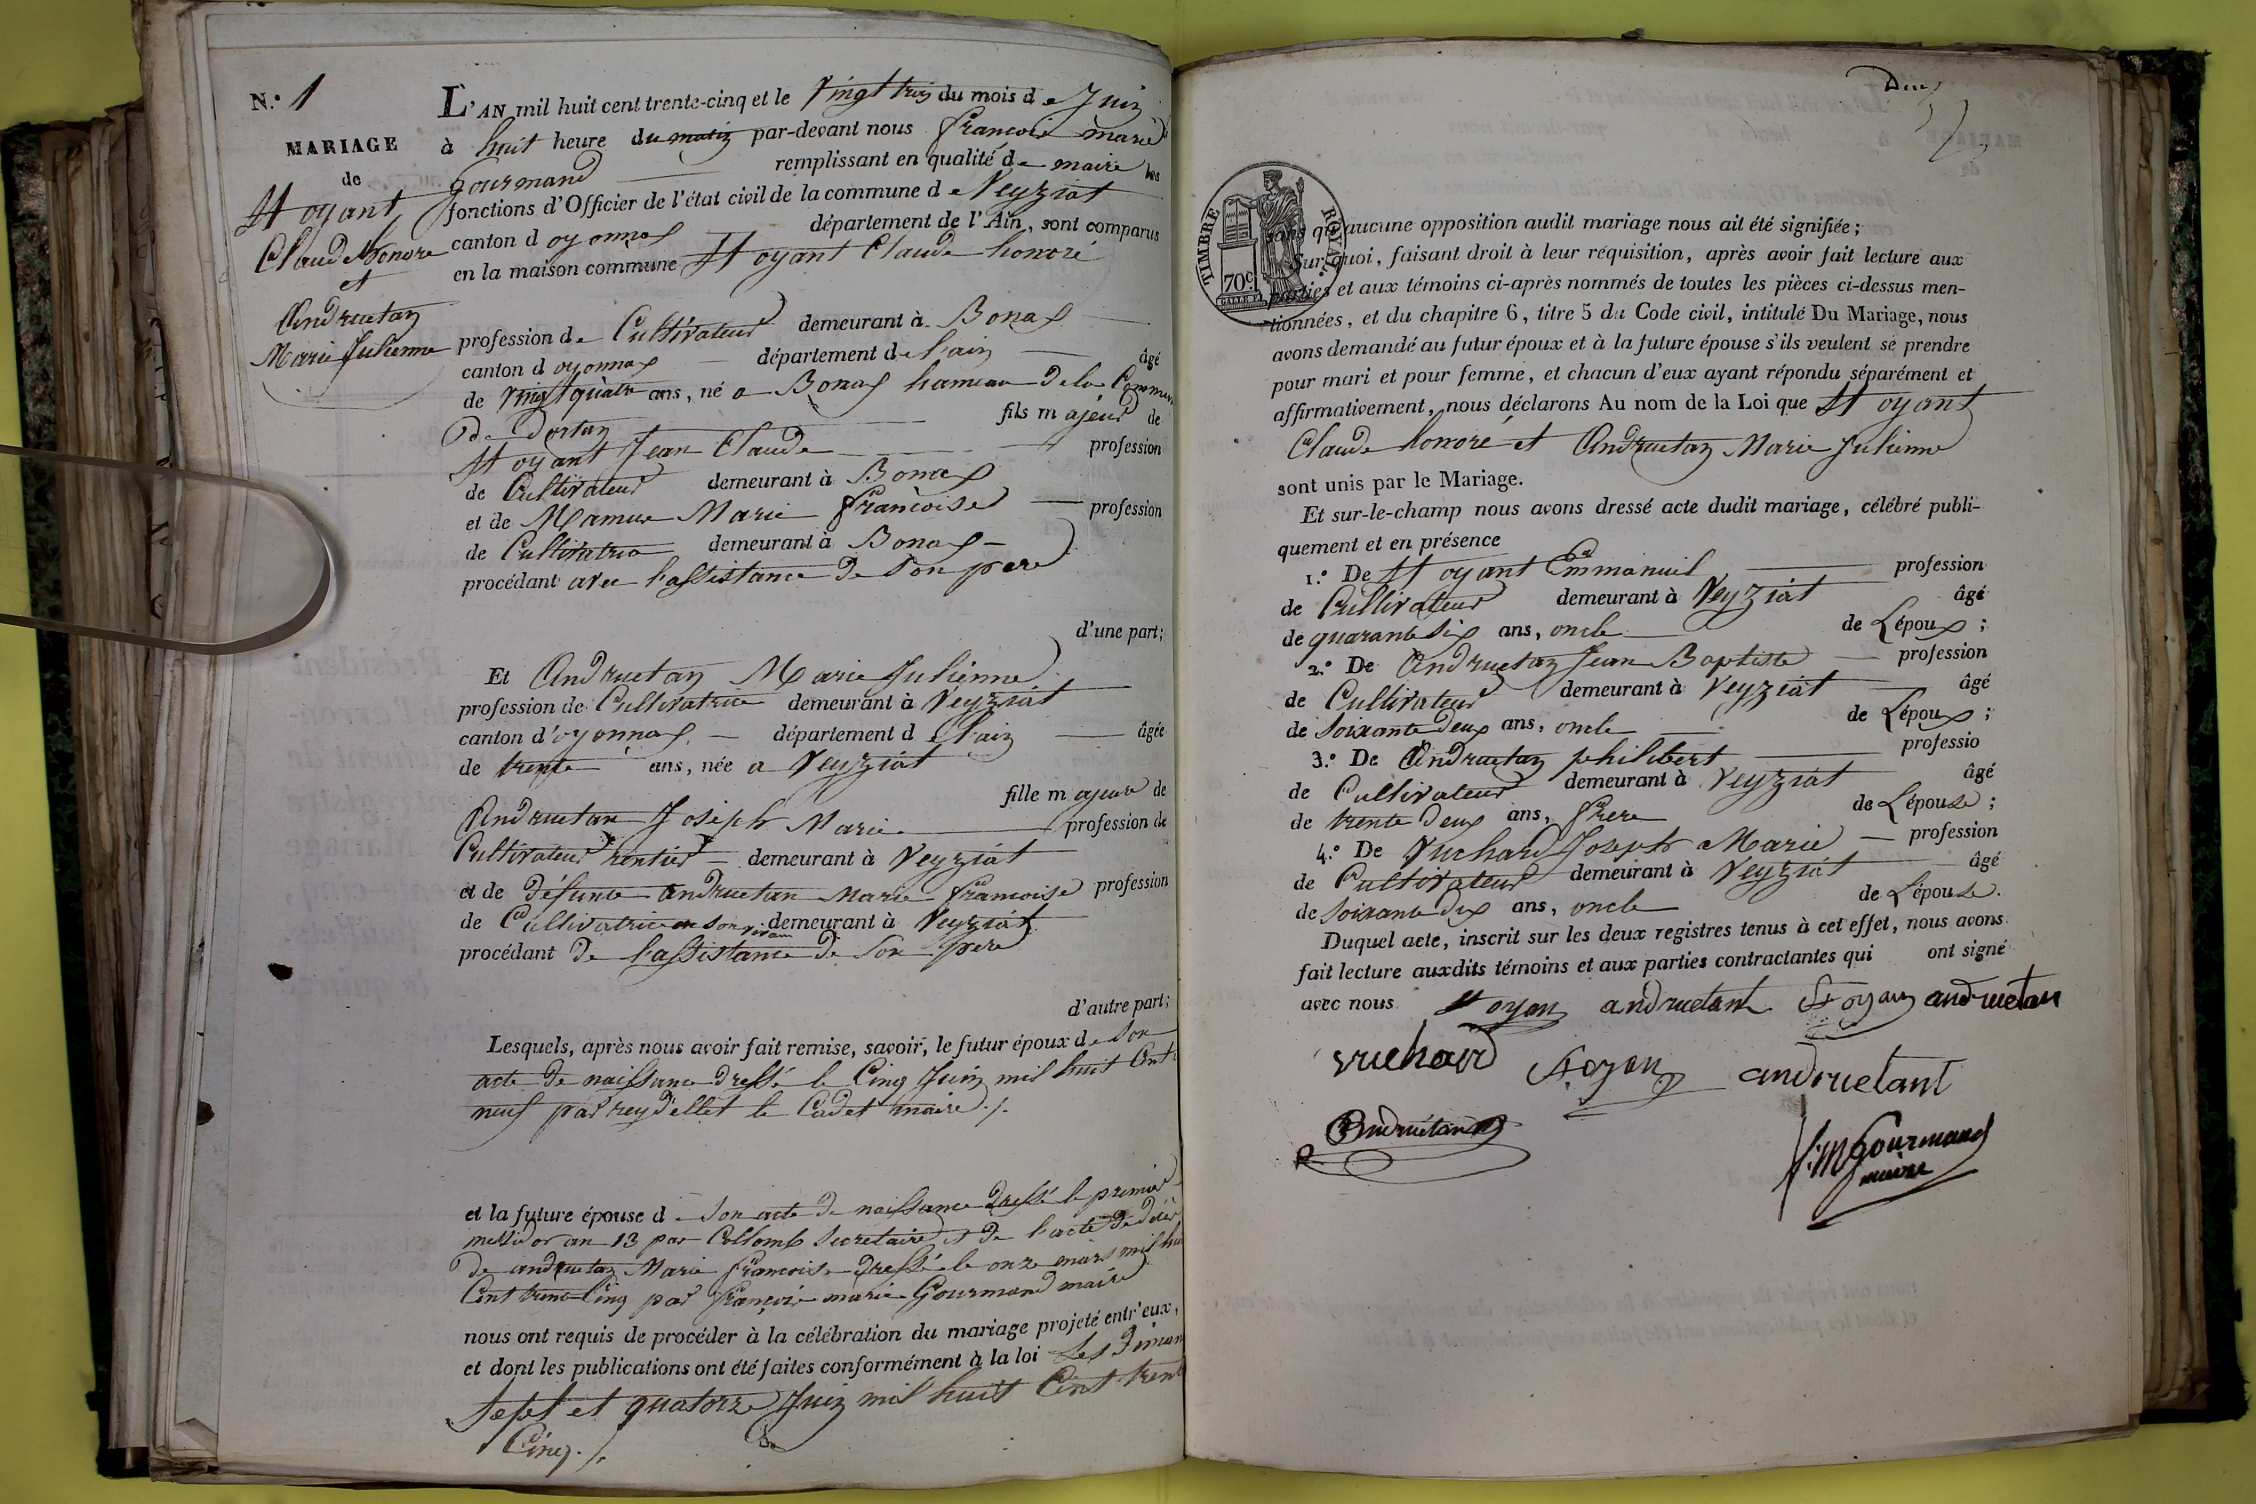 N.° 1
MARIAGE
de
St oyant
Claude honoré
et
Andruetan
Marie Julienne
L'AN mil huit cent trente-cinq et le Vingt trois du mois de Juin
à huit heure du matin par-devant nous françois marie
Gourmand remplissant en qualité de maire les
fonctions d'Officier de l'état civil de la commune de Veyziat
canton d oyonnax département de l'Ain, sont comparus
en la maison commune St oyant Claude honoré
profession de Cultivateur demeurant à Bonax
canton d oyonnax département de l'ain âgé
de vingt quatre ans, né a Bonax hameau de la Commune
de Dortan fils majeur de
St oyant Jean Claude profession
de Cultivateur demeurant à Bonax
et de Mamure Marie françoise profession
de Cultivatrice demeurant à Bonax
procédant avec l'assistance de son pere
d'une part;
Et Andruetan Marie Julienne
profession de Cultivatrice demeurant à Veyziat
canton d'oyonnax département de l'ain âgée
de trente ans, née a Veyziat
fille majeure de
Andruetan Joseph Marie profession de
Cultivateur rentier demeurant à Veyziat
et de défunte andruetan Marie françoise profession
de Cultivatrice en son vivant demeurant à Veyziat
procédant de l'assistance de son pere
d'autre part;
Lesquels, après nous avoir fait remise, savoir, le futur époux de son
acte de naissance dressé le Cinq Juin mil huit Cent
neuf par reydellet le Cadet maire ./.
et la future épouse de son acte de naissance dressé le premier
messidor an 13 par Collomb Secretaire et de l'acte de décès
de andruetan Marie françoise dressé le onze mars mil hui
Cent trente Cinq par françois marie Gourmand maire
nous ont requis de procéder à la célébration du mariage projeté entr'eux,
et dont les publications ont été faites conformément à la loi les diman
sept et quatorze Juin mil huit Cent trente
Cinq ./.
Deux
TIMBRE ROYAL
70c
sans qu'aucune opposition audit mariage nous ait été signifiée;
Sur quoi, faisant droit à leur réquisition, après avoir fait lecture aux
parties et aux témoins ci-après nommés de toutes les pièces ci-dessus men-
tionnées, et du chapitre 6, titre 5 du Code civil, intitulé Du Mariage, nous
avons demandé au futur époux et à la future épouse s'ils veulent se prendre
pour mari et pour femme, et chacun d'eux ayant répondu séparément et
affirmativement, nous déclarons Au nom de la Loi que St oyant
Claude honoré et Andruetan Marie Julienne
sont unis par le Mariage.
Et sur-le-champ nous avons dressé acte dudit mariage, célébré publi-
quement et en présence
1.° De St oyant Emmanuel profession
de Cultivateur demeurant à Veyziat âgé
de quarante six ans, oncle de L'époux;
2.° De Andruetan Jean Baptiste profession
de Cultivateur demeurant à Veyziat âgé
de soixante deux ans, oncle de L'époux;
3.° De Andruetan philibert professio
de Cultivateur demeurant à Veyziat âgé
de trente deux ans, frere de L'épouse;
4.° De Vuchard Joseph Marie profession
de Cultivateur demeurant à Veyziat âgé
de soixante dix ans, oncle de L'épouse.
Duquel acte, inscrit sur les deux registres tenus à cet effet, nous avons
fait lecture auxdits témoins et aux parties contractantes qui ont signé
avec nous St oyan andruetant St oyan andruetan
vuchard St oyan andruetant
Andruétan
f. M Gourmand
maire